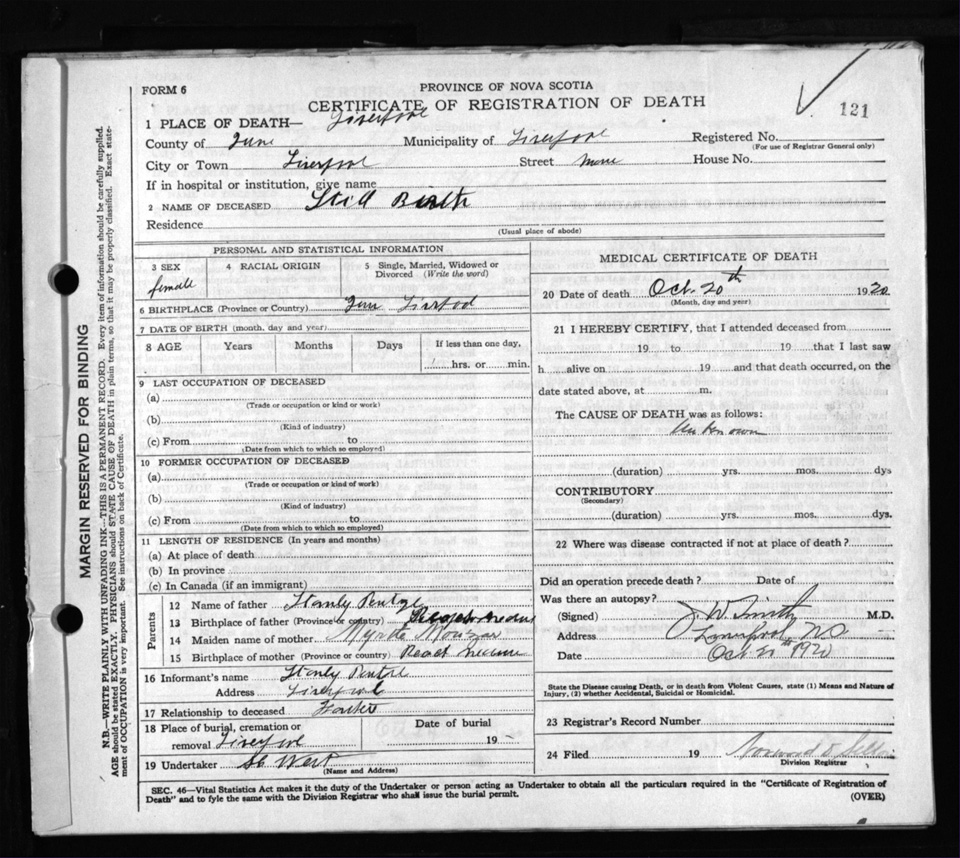 FORM 6
PROVINCE OF NOVA SCOTIA
CERTIFICATE OF REGISTRATION OF DEATH
121
1 PLACE OF DEATH— Liverpool
County of Municipality of Liverpool Registered No.
(For use of Registrar General only)
City or Town Liverpool Street House No.
If in hospital or institution, give name
2 NAME OF DECEASED Still Birth
Residence
(Usual place of abode)
PERSONAL AND STATISTICAL INFORMATION
3 SEX 4 RACIAL ORIGIN 5 Single, Married, Widowed or Divorced (Write the word)
female
6 BIRTHPLACE (Province or Country)
7 DATE OF BIRTH (month, day and year)
8 AGE Years Months Days If less than one day,
hrs. or min.
9 LAST OCCUPATION OF DECEASED
(a)
(Trade or occupation or kind or work)
(b)
(Kind of industry)
(c) From to
(Date from which to which so employed)
10 FORMER OCCUPATION OF DECEASED
(a)
(Trade or occupation or kind of work)
(b)
(Kind of industry)
(c) From to
(Date from which to which so employed)
11 LENGTH OF RESIDENCE (In years and months)
(a) At place of death
(b) In province
(c) In Canada (if an immigrant)
Parents
12 Name of father Stanly
13 Birthplace of father (Province or country)
14 Maiden name of mother Myrtle
15 Birthplace of mother (Province or country)
16 Informant's name Stanly
Address Liverpool
17 Relationship to deceased Father
18 Place of burial, cremation or Date of burial
removal Liverpool 19
19 Undertaker West
(Name and Address)
MEDICAL CERTIFICATE OF DEATH
20 Date of death Oct. 20th 1920
(Month, day and year)
21 I HEREBY CERTIFY, that I attended deceased from
19 to 19 that I last saw
h alive on 19 and that death occurred, on the
date stated above, at m.
The CAUSE OF DEATH was as follows:
Unknown
(duration) yrs. mos. dys
CONTRIBUTORY
(Secondary)
(duration) yrs. mos. dys.
22 Where was disease contracted if not at place of death?
Did an operation precede death? Date of
Was there an autopsy?
(Signed) J. W. Smith M.D.
Address Liverpool, N.S.
Date Oct 21st 1920
State the Disease causing Death, or in death from Violent Causes, state (1) Means and Nature of
Injury, (2) whether Accidental, Suicidal or Homicidal.
23 Registrar's Record Number
24 Filed 19
Division Registrar
SEC. 46—Vital Statistics Act makes it the duty of the Undertaker or person acting as Undertaker to obtain all the particulars required in the "Certificate of Registration of
Death" and to fyle the same with the Division Registrar who shall issue the burial permit.
(OVER)
MARGIN RESERVED FOR BINDING
N.B.—WRITE PLAINLY WITH UNFADING INK—THIS IS A PERMANENT RECORD. Every item of information should be carefully supplied.
AGE should be stated EXACTLY. PHYSICIANS should STATE CAUSE OF DEATH in plain terms, so that it may be properly classified. Exact state-
ment of OCCUPATION is very important. See instructions on back of Certificate.